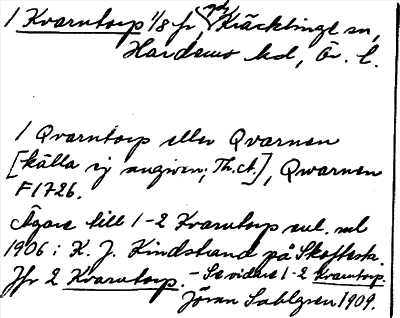 1 Kvarntorp 1/8 fr, Kräcklinge sn,
Hardemo hd, Ör. l.
1 Qvarntorp eller Qvarnen
[källa ej angiven; Th.A.], Qwarnen
F1726.
Ägare till 1-2 Kvarntorp enl. ml
1906: K. J. Kindstrand på Skoftesta.
Jfr 2 Kvarntorp. - Se vidare 1-2 Kvarntorp.
Jöran Sahlgren 1909.